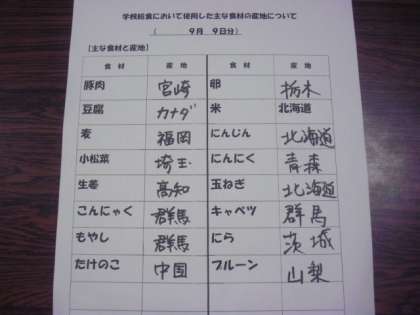 学校給食において使用した主な食材の産地について
( 9月 9日分)
[主な食材と産地]
食材 産地 食材 産地
豚肉 宮崎 卵 栃木
豆腐 カナダ 米 北海道
麦 福岡 にんじん 北海道
小松菜 埼玉 にんにく 青森
生姜 高知 玉ねぎ 北海道
こんにゃく 群馬 キャベツ 群馬
もやし 群馬 にら 茨城
たけのこ 中国 プルーン 山梨